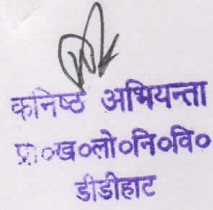 कनिष्ठ अभियन्ता
प्रा०ख०लो०नि०वि०
डीडीहाट